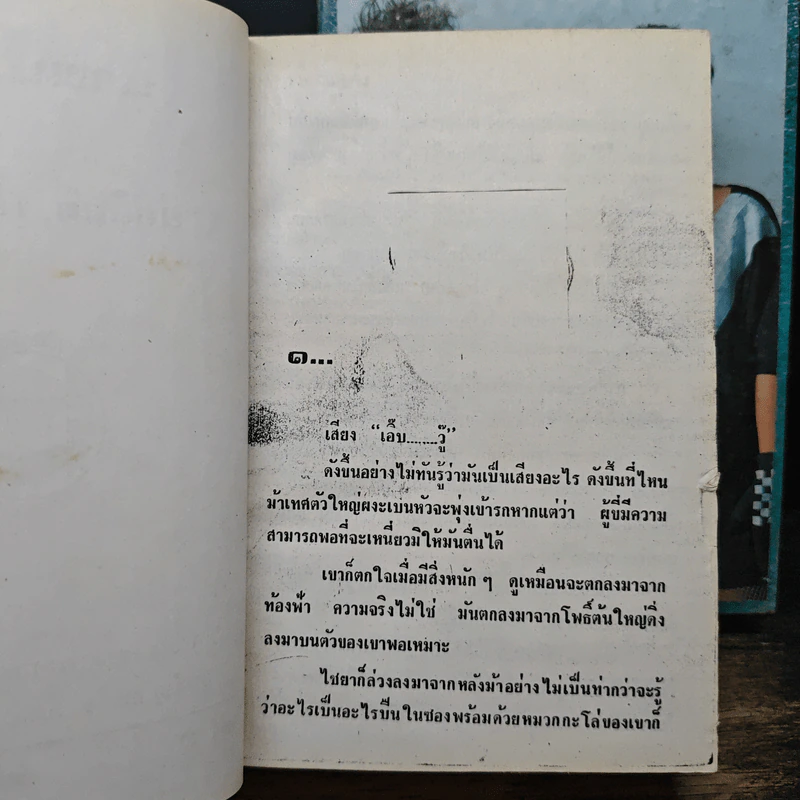 ๑...
เสียง “เอิ๊บ........วู๊”
ดังขึ้นอย่างไม่ทันรู้ว่ามันเป็นเสียงอะไร ดังขึ้นที่ไหน
ม้าเทศตัวใหญ่ผงะเบนหัวจะพุ่งเข้ารกหากแต่ว่า ผู้ขี่มีความ
สามารถพอที่จะเหนี่ยวมิให้มันตื่นได้
เขาก็ตกใจเมื่อมีสิ่งหนัก ๆ ดูเหมือนจะตกลงมาจาก
ท้องฟ้า ความจริงไม่ใช่ มันตกลงมาจากโพธิ์ต้นใหญ่ดิ่ง
ลงมาบนตัวของเขาพอเหมาะ
ไชยาก็ล่วงลงมาจากหลังม้าอย่างไม่เป็นท่ากว่าจะรู้
ว่าอะไรเป็นอะไรปืนในซองพร้อมด้วยหมวกกะโล่ของเขาก็